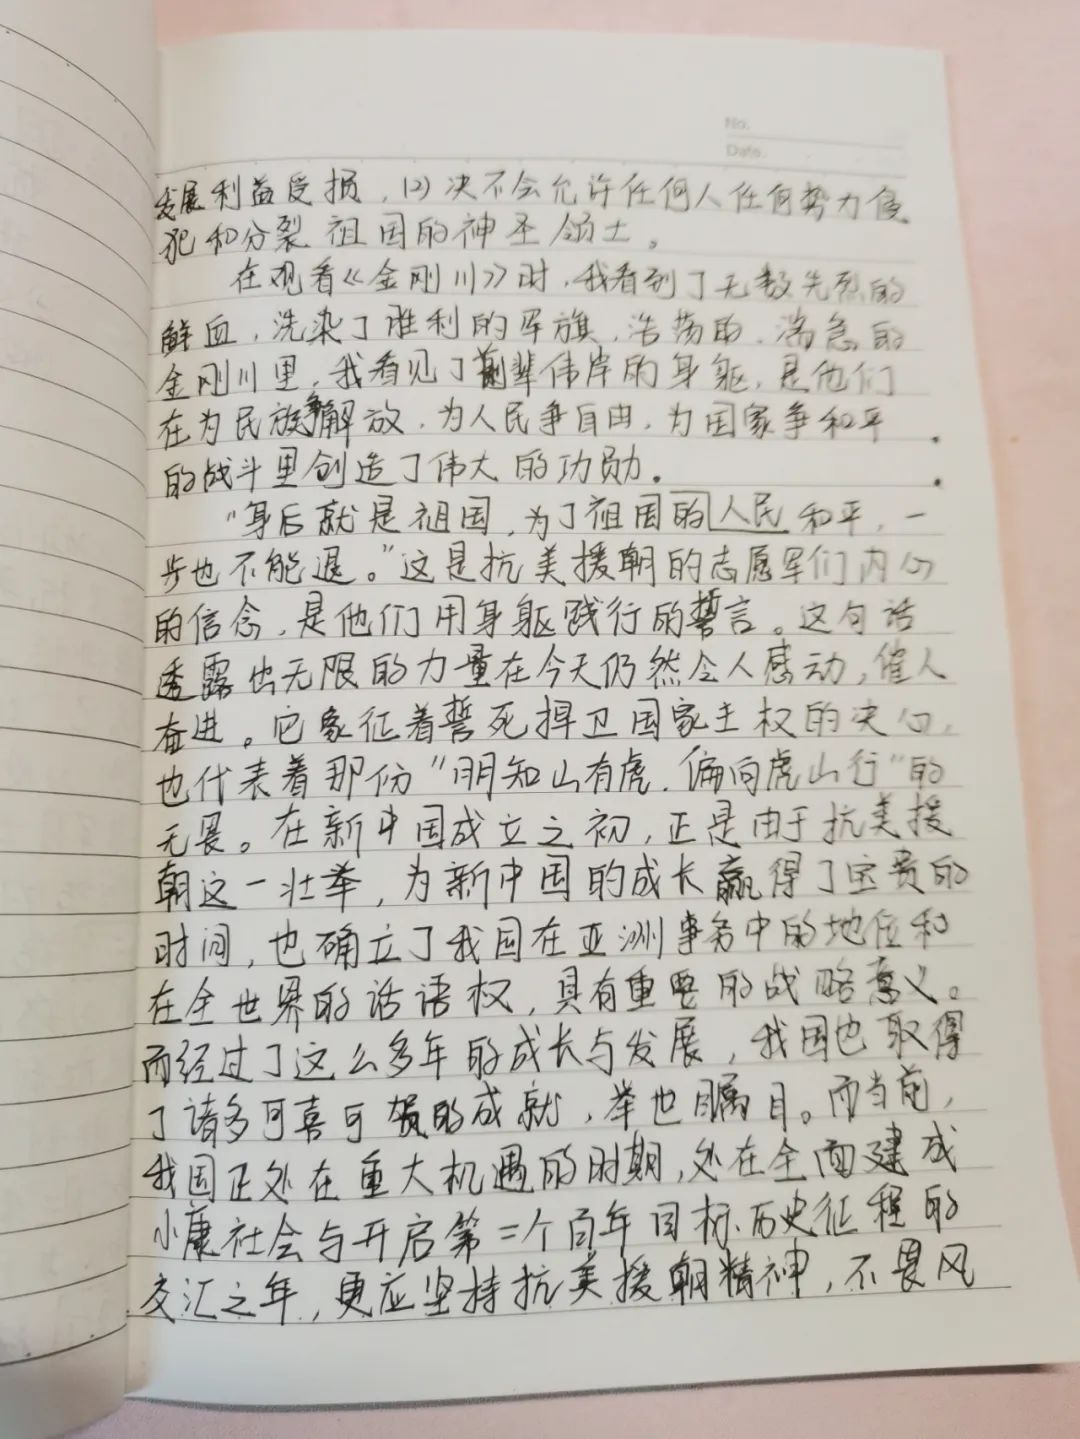 No.
Date.
发展利益受损，(2)决不会允许任何人任何势力侵
犯和分裂祖国的神圣领土。
在观看《金刚川》时，我看到了无数先烈的
鲜血，洗染了胜利的军旗，浩荡的、湍急的
金刚川里，我看见了前辈伟岸的身躯，是他们
在为民族争解放，为人民争自由，为国家争和平
的战斗里创造了伟大的功勋。
“身后就是祖国，为了祖国的人民和平，一
步也不能退。”这是抗美援朝的志愿军们内心
的信念，是他们用身躯践行的誓言。这句话
透露出无限的力量在今天仍然令人感动，催人
奋进。它象征着誓死捍卫国家主权的决心，
也代表着那份“明知山有虎，偏向虎山行”的
无畏。在新中国成立之初，正是由于抗美援
朝这一壮举，为新中国的成长赢得了宝贵的
时间，也确立了我国在亚洲事务中的地位和
在全世界的话语权，具有重要的战略意义。
而经过了这么多年的成长与发展，我国也取得
了诸多可喜可贺的成就，举世瞩目。而当前，
我国正处在重大机遇的时期，处在全面建成
小康社会与开启第二个百年目标、历史征程的
交汇之年，更应坚持抗美援朝精神，不畏风